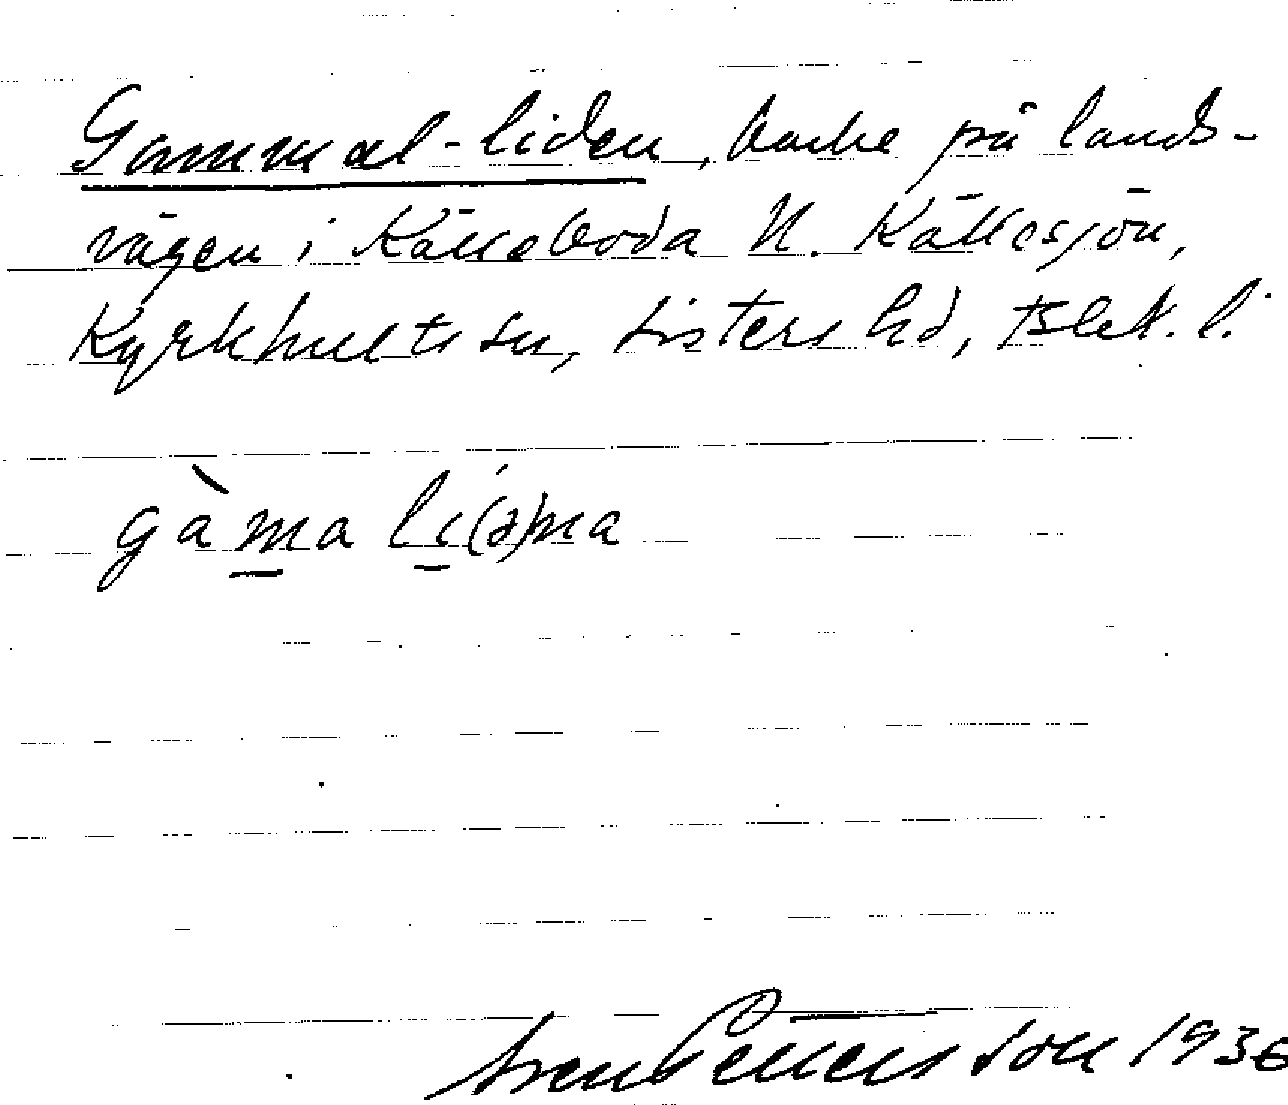 Gammal-liden, backe på lands-
vägen i Källeboda N. Källesjön,
Kyrkhults sn, Listers hd, Blek. l.
gàma li(ə)na
Sven Pettersson 1936